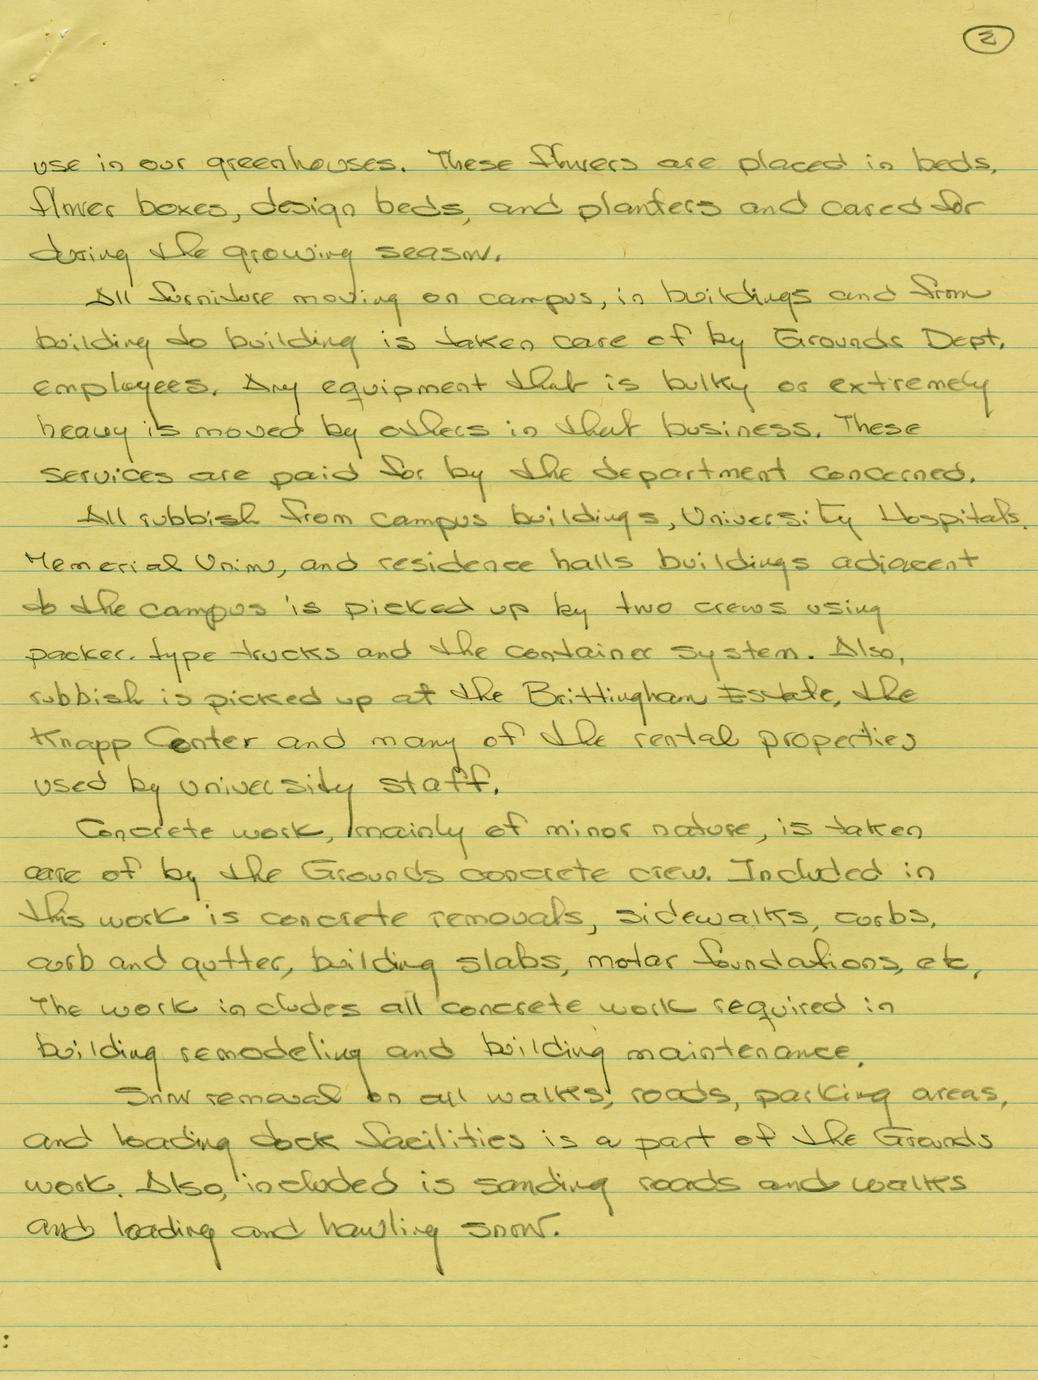 2
use in our greenhouses. These flowers are placed in beds,
flower boxes, design beds, and planters and cared for
during the growing season.
All furniture moving on campus, in buildings and from
building to building is taken care of by Grounds Dept.
employees. Any equipment that is bulky or extremely
heavy is moved by others in that business. These
services are paid for by the department concerned.
All rubbish from campus buildings, University Hospitals,
Memorial Union, and residence halls buildings adjacent
to the campus is picked up by two crews using
packer-type trucks and the container system. Also,
rubbish is picked up at the Brittingham Estate, the
Knapp Center and many of the rental properties
used by university staff.
Concrete work, mainly of minor nature, is taken
care of by the Grounds concrete crew. Included in
this work is concrete removals, sidewalks, curbs,
curb and gutter, building slabs, motor foundations, etc,
The work includes all concrete work required in
building remodeling and building maintenance.
Snow removal on all walks, roads, parking areas,
and loading dock facilities is a part of the Grounds
work. Also, included is sanding roads and walks
and loading and hawling snow.
: